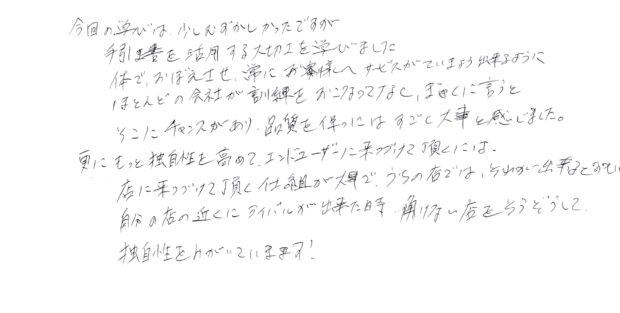 今回の学びは、少しむずかしかったですが
手引書を活用する大切さを学びました
体で、おぼえさせ、常に、お客様へ サービスがていきょう出来るように
ほとんどの会社が訓練をおこなってなく、ぎゃくに言うと
そこにチャンスがあり、品質を保つにはすごく大事と感じました。
更にもっと独自性を高めて、エンドユーザーに来つづけて頂くには、
店に来つづけて頂く仕組が大事で、うちの店では、それが出来ると
自分の店の近くにライバルが出来た時、負けない店をそうぞうして、
独自性をみがいていきます!